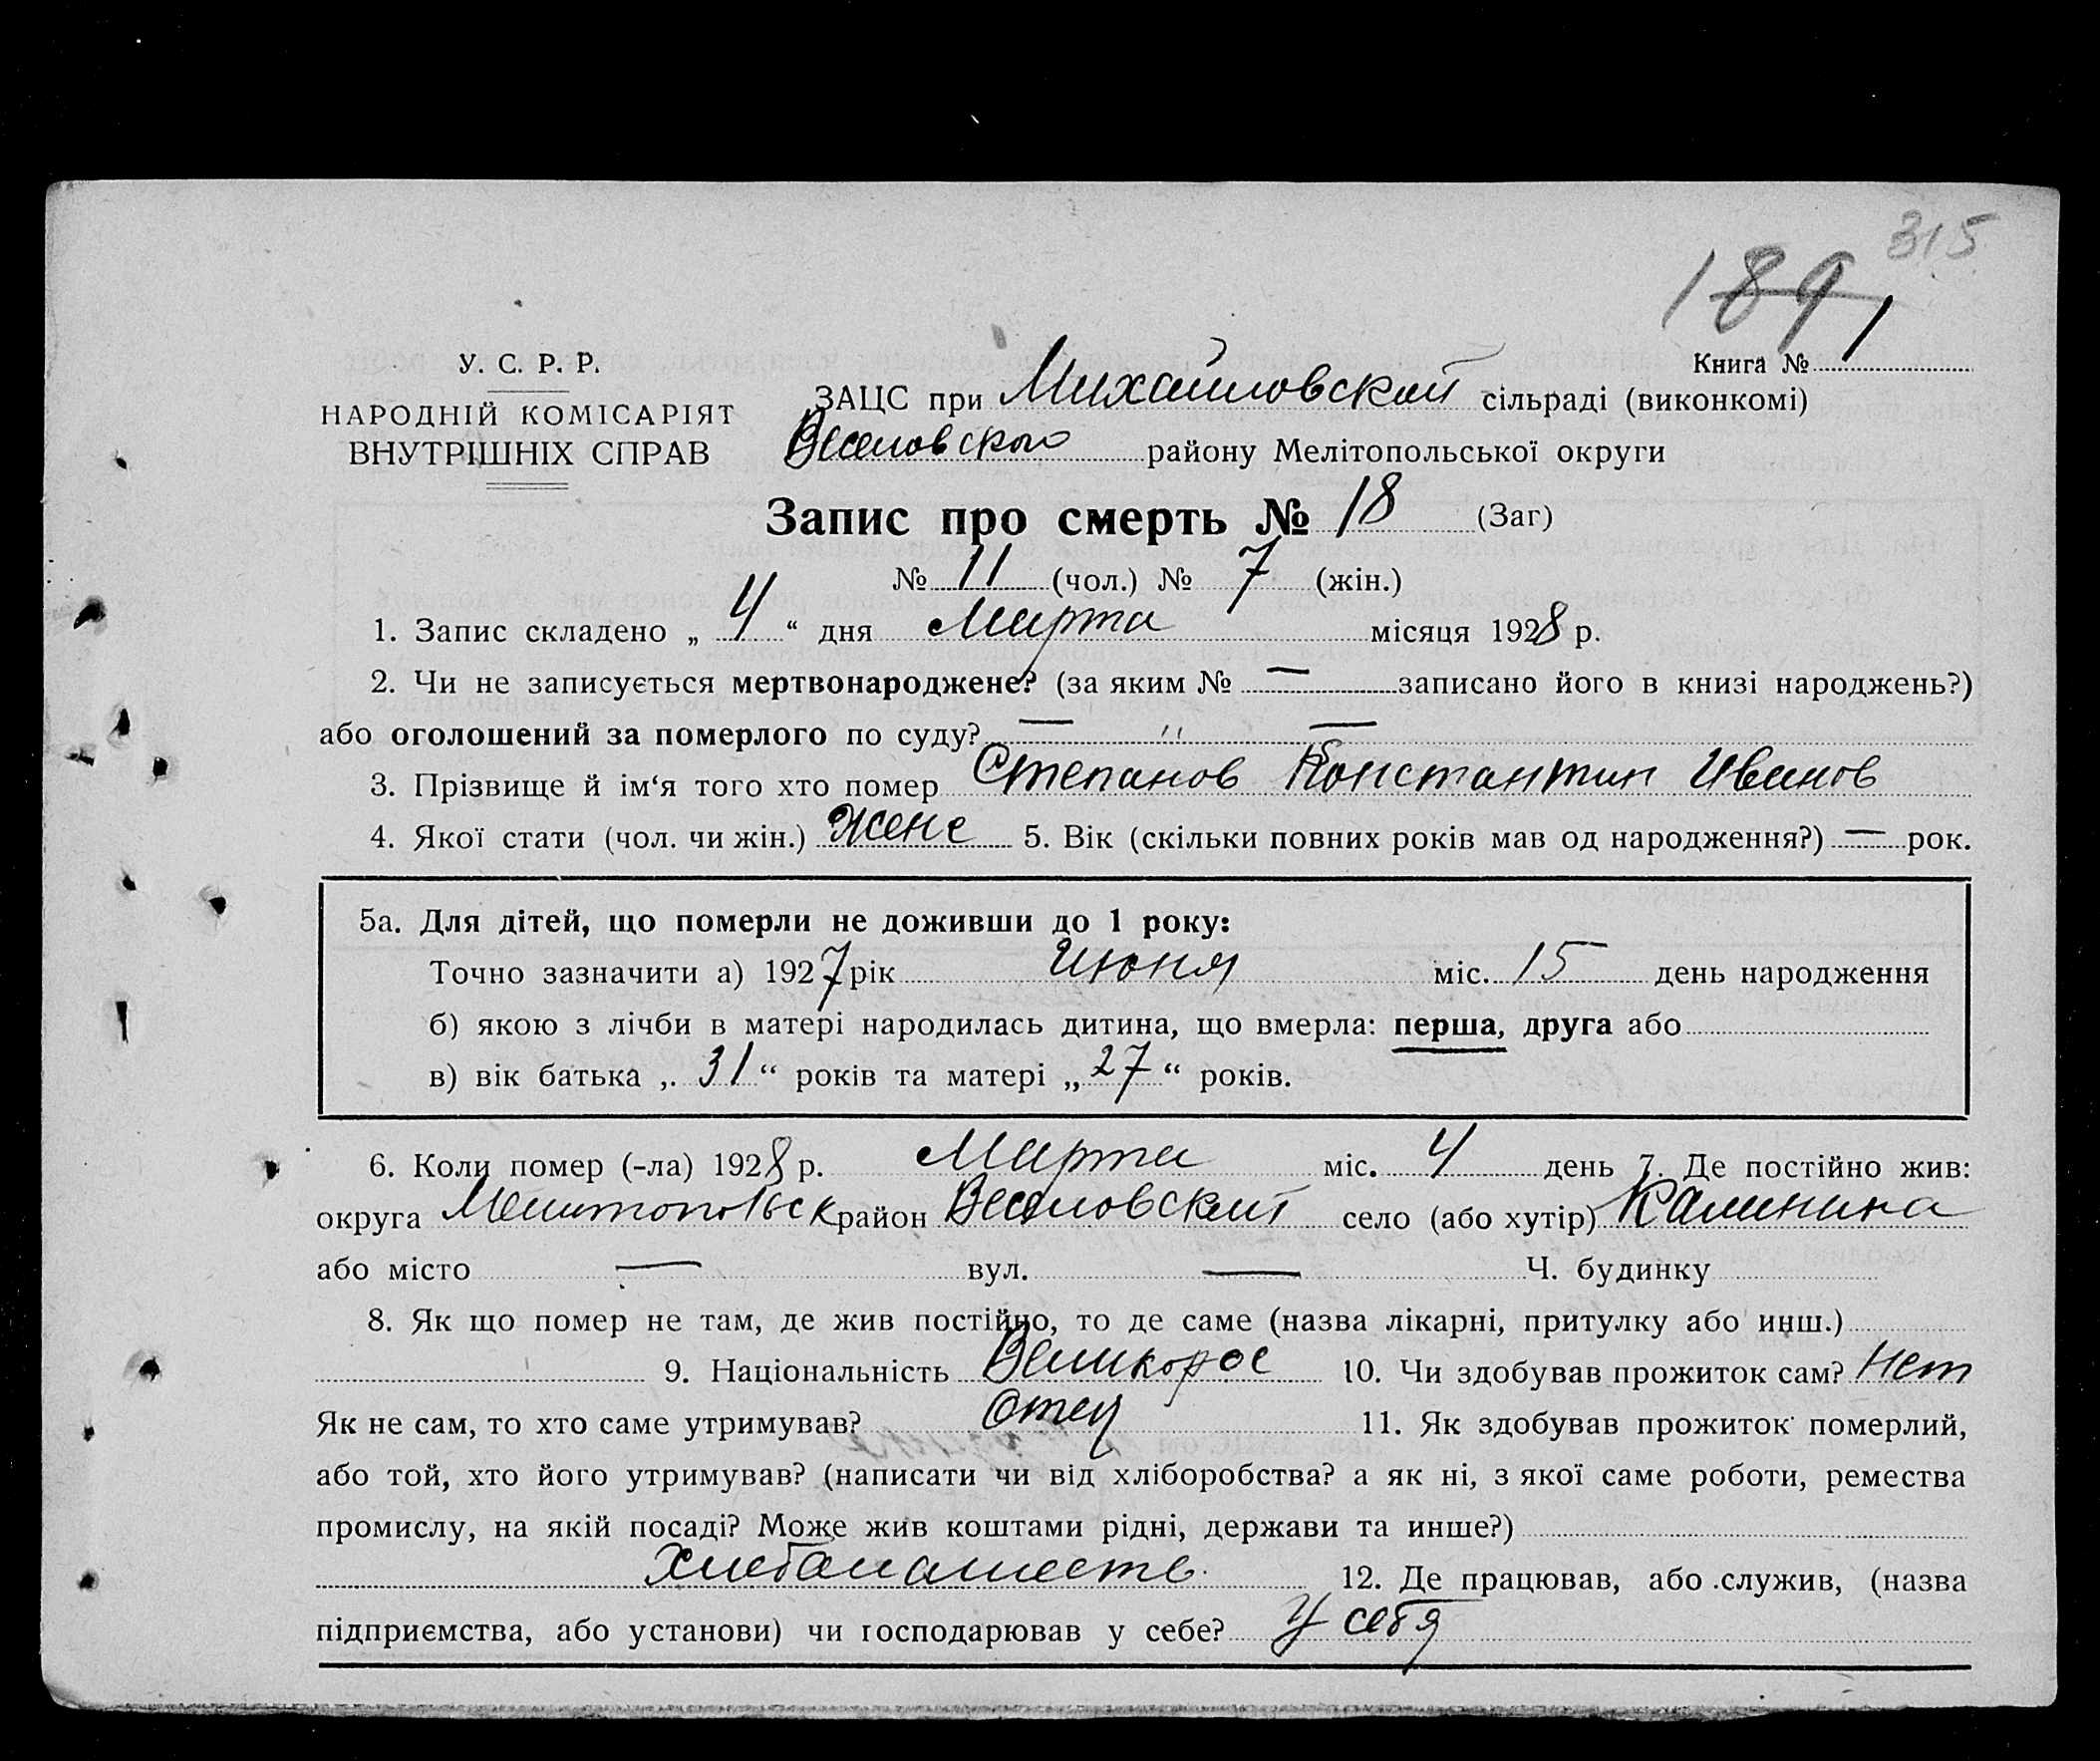 315
189
Книга № 1
У. С. Р. Р.
НАРОДНІЙ КОМІСАРІЯТ
ВНУТРІШНІХ СПРАВ
ЗАЦС при Михайловской сільраді (виконкомі)
Веселовского району Мелітопольської округи
Запис про смерть № 18 (Заг)
№ 11 (чол.) № 7 (жін.)
1. Запис складено „ 4 “ дня Марта місяця 1928 р.
2. Чи не записується мертвонароджене? (за яким № — записано його в книзі народжень?)
або оголошений за померлого по суду? — " —
3. Прізвище й ім‘я того хто помер Степанов Константин Иванов
4. Якої стати (чол. чи жін.) Женс 5. Вік (скільки повних років мав од народження?) — рок.
5а. Для дітей, що померли не доживши до 1 року:
Точно зазначити а) 1927 рік Июня міс. 15 день народження
б) якою з лічби в матері народилась дитина, що вмерла: перша, друга або
в) вік батька „ 31 “ років та матері „ 27 “ років.
6. Коли помер (-ла) 1928 р. Марта міс. 4 день 7. Де постійно жив:
округа Мелитопольск район Веселовский село (або хутір) Калинина
або місто — вул. — Ч. будинку
8. Як що помер не там, де жив постійно, то де саме (назва лікарні, притулку або инш.)
9. Національність Великорос 10. Чи здобував прожиток сам? Нет
Як не сам, то хто саме утримував? Отец 11. Як здобував прожиток померлий,
або той, хто його утримував? (написати чи від хліборобства? а як ні, з якої саме роботи, ремества
промислу, на якій посаді? Може жив коштами рідні, держави та инше?)
Хлебапашеств. 12. Де працював, або служив, (назва
підприємства, або установи) чи господарював у себе? У себя